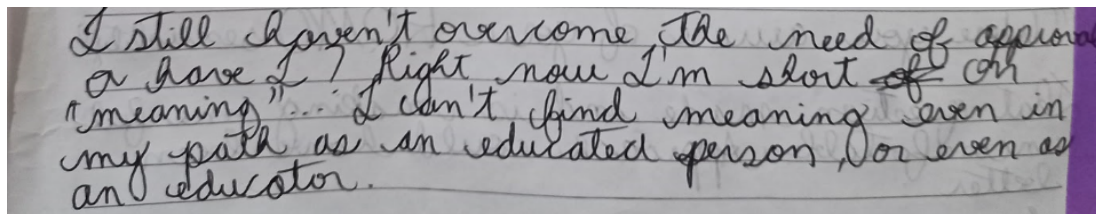 I still haven't overcome the need of approval
or have I? Right now I'm short of on
"meaning"... I can't find meaning even in
my path as an educated person, or even as
an educator.